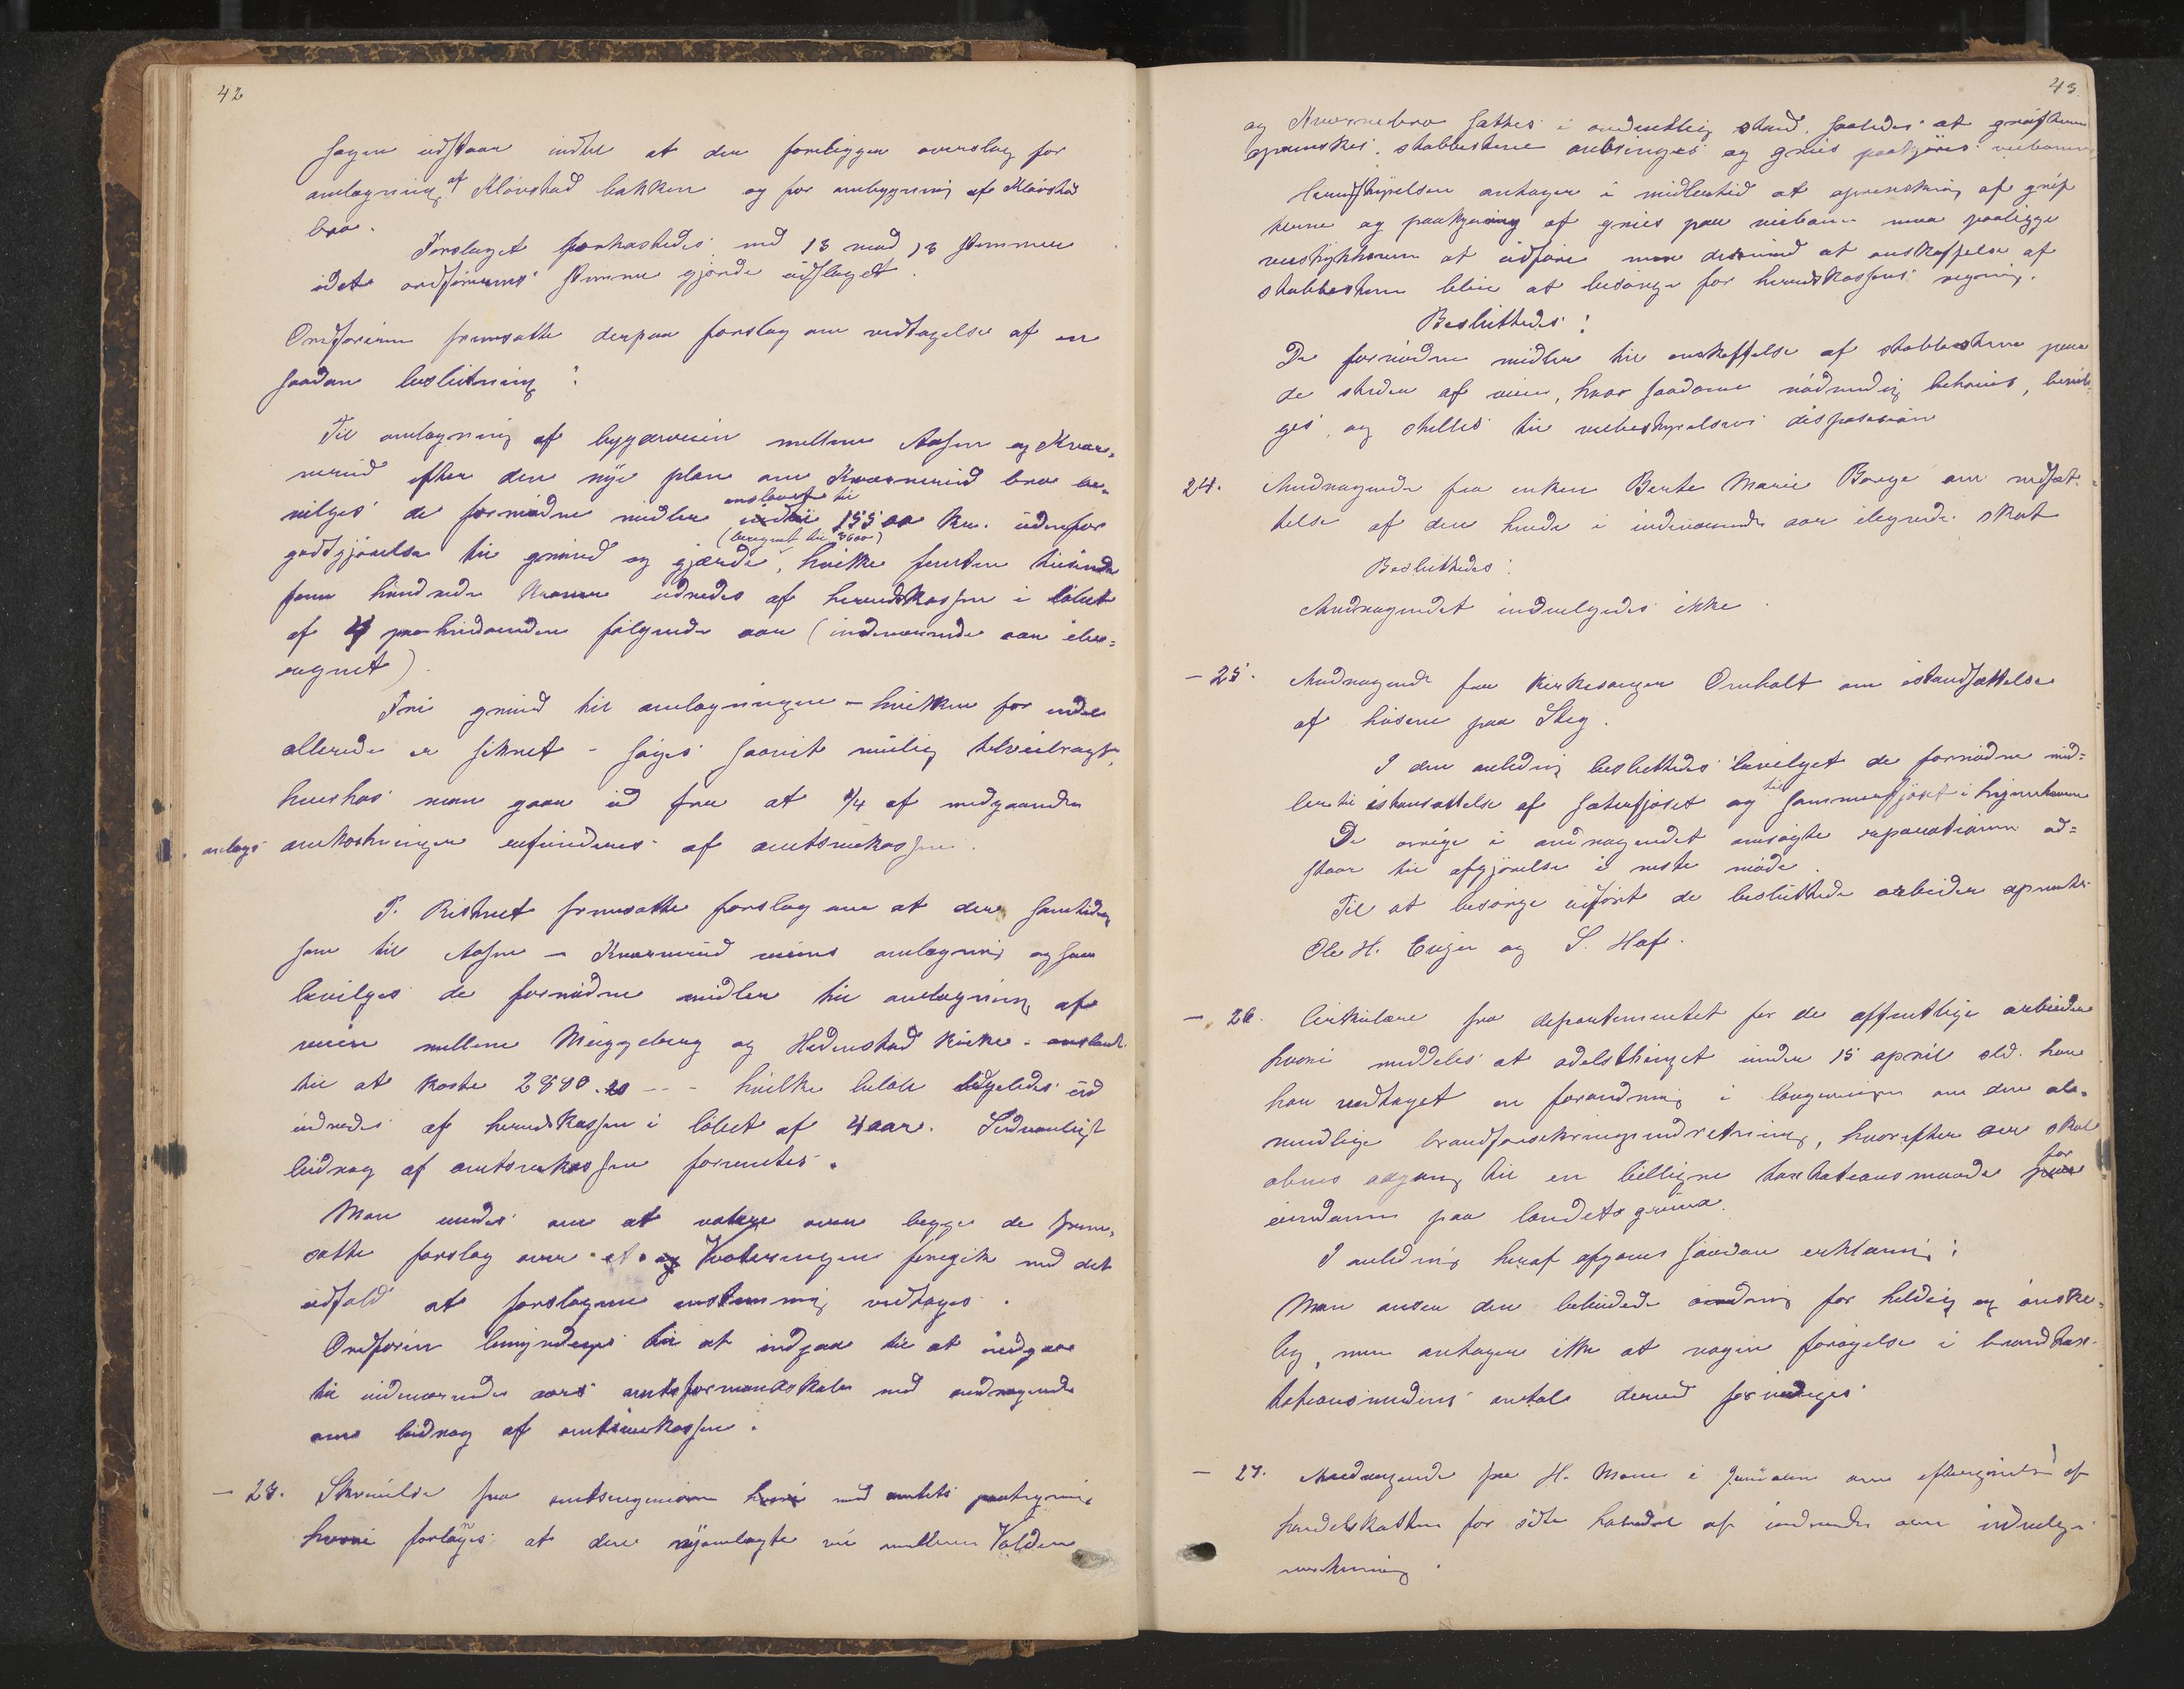 42
Sagen udstaar indtil at der foreligger overslag for
omlægning af Klövstad bakken og for ombygning af Klövstad
bro.
Forslaget forkastedes med 13 mod 13 stemmer
idet ordförerens stemme gjorde udslaget.
Ordföreren fremsatte derpaa forslag om vedtagelse af en
saadan beslutning:
Til omlægning af bygdeveien mellem Aasen og Kver-
nerud efter den nye plan om Kvernerud bro be-
vilges de fornödne midler anslaaet til 15500 kr. udenfor
godtgjörelse til grund og gjærde (beregnet til 3600), hvilke femten tusinde
fem hundrede kroner udredes af herredskassen i löbet
af 4 paa hinanden fölgende aar (indeværende aar ibe-
regnet)
Fri grund til omlægningen – hvilken for endel
allerede er sikret – söges saavit mulig tilveiebragt,
hvorhos man gaar ud fra at 1/4 af medgaaende
anlægs omkostninger refunderes af amtsveikassen.
T. Ristvet fremsatte forslag om at der samtidig
som til Aasen – Kvernerud veiens omlægning ogsaa
bevilges de fornödne midler til omlægning af
veien mellem Muggeberg og Hedenstad kirke – anslaaet
til at koste 2840.20 – – hvilke belöb ligeledes
udredes af herredskassen i löbet af 4 aar. Sedvanligt
bidrag af amtsveikassen forventes.
Man enedes om at votere over begge de frem-
satte forslag over et og Voteringen foregik med det
udfald at forslagene enstemmig vedtages.
Ordförer bemyndiges til at indgaa til at indgaa
til indeværende aars amtsformandskab med andragende
om bidrag af amtsveikassen.
– 23. Skrivelse fra amtsingeniören med amtets paategning
hvori forlanges at den nyomlagte vei mellem Volden
43
og Kvernebro sættes i ordentlig stand, saaledes at gröfterne
oprenskes, stabbestene anbringes og grus paakjöres veibanen
Herredstyrelsen antager i midlertid at oprenskning af gröf
terne og paakjöring af grus paa veibanen maa paaligge
veistykkerne at udföre men derimod at anskaffelse af
stabbestene blir at besörge for herredskassens regning.
Besluttedes:
De fornödne midler til anskaffelse af stabbestene paa
de steder af veien, hvor saadanne nödvendig behöves, bevil-
ges, og stilles til veibestyrelsens disposision
24. Andragende fra enken Berte Marie Borge om nedsæt-
telse af den hende i indeværende aar ilignede skat
Besluttedes:
Andragendet indvilgedes ikke.
– 25. Andragende fra kirkesanger Omholt om istandsættelse
af husene paa Steg.
I den anledning besluttedes bevilget de fornödne mid-
ler til istandsættelse af sæterfjöset og til sommerfjöset i hjemmehavnen
De övrige i andragendet omsögte reparationer ud-
staar til afgjörelse i neste möde.
Til at besörge udfört de besluttede arbeider opnevntes
Ole H. Enger og S. Hof.
– 26. Cirkulære fra departementet for de offentlige arbeider
hvori meddeles at odelsthinget under 15 april sld. har
har vedtaget en forandring i lovgivningen om den al-
mindelige brandforsikringsindretning, hvorefter der skal
aabnes adgang til en billigere taxtationsmaade for
eiendomme paa landets grund.
I anledning heraf afgaves saadan erklæring:
Man anser den bebudede ændring for heldig og önske-
lig, men antager ikke at nogen forögelse i brandtax-
tationsmændens antal derved fornödiges
– 27. Andragende fra H. Moen i Jondalen om eftergivelse af
herredskatten for sidste halvdel af indeværende aar indvilges